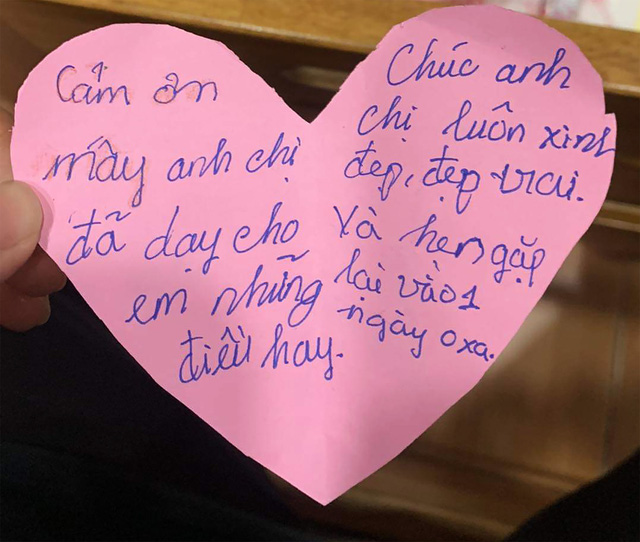 Cảm ơn
mấy anh chị
đã dạy cho
em những
điều hay.
Chúc anh
chị luôn xinh
đẹp, đẹp trai.
Và hẹn gặp
lại vào 1
ngày 0 xa.